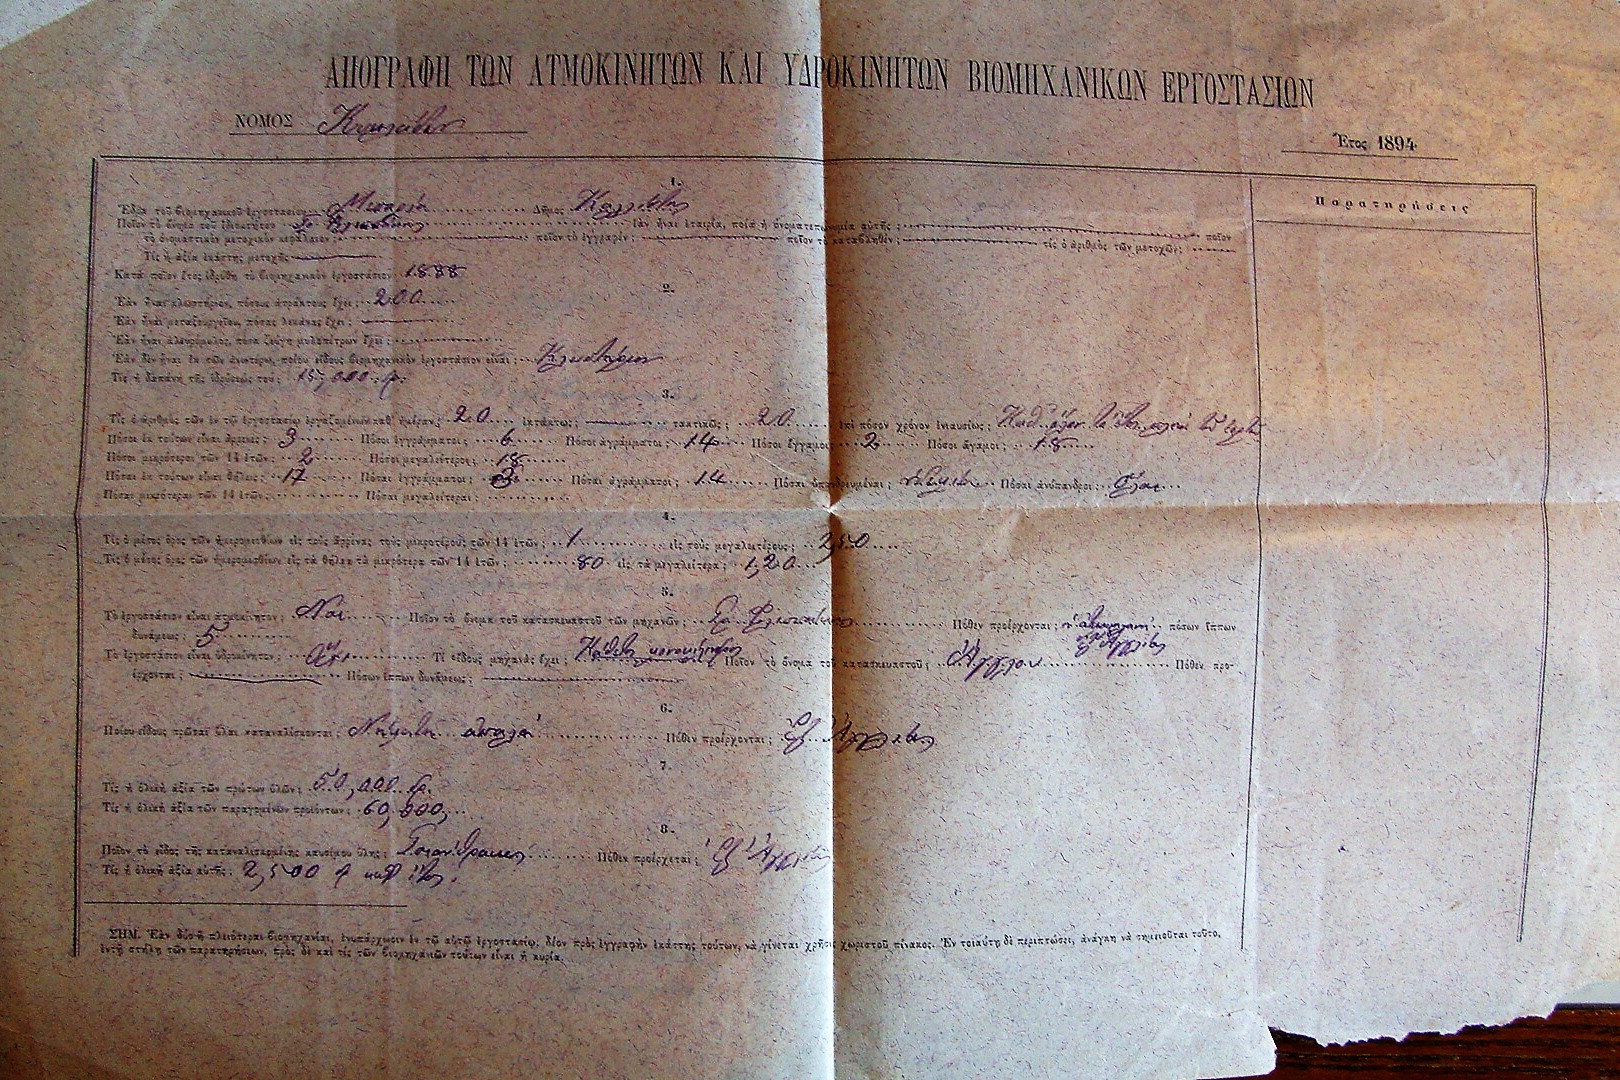 ΑΠΟΓΡΑΦΗ ΤΩΝ ΑΤΜΟΚΙΝΗΤΩΝ ΚΑΙ ΥΔΡΟΚΙΝΗΤΩΝ ΒΙΟΜΗΧΑΝΙΚΩΝ ΕΡΓΟΣΤΑΣΙΩΝ
ΝΟΜΟΣ Κυκλάδων
Ἔτος 1894
Παρατηρήσεις
1.
Ἕδρα τοῦ βιομηχανικοῦ ἐργοστασίου Μεσαριά Δῆμος Καλλίστης
Ποῖον τὸ ὄνομα τοῦ ἰδιοκτήτου ἐὰν ἦναι ἑταιρία, ποία ἡ ὀνοματεπωνυμία αὐτῆς; ποῖον
τὸ ὀνομαστικὸν μετοχικὸν κεφάλαιον; ποῖον τὸ ἐγγραφέν; ποῖον τὸ καταβληθέν; τίς ὁ ἀριθμὸς τῶν μετοχῶν;
Τίς ἡ ἀξία ἑκάστης μετοχῆς
Κατὰ ποῖον ἔτος ἱδρύθη τὸ βιομηχανικὸν ἐργοστάσιον 1888
2.
Ἐὰν ἦναι κλωστήριον, πόσους ἀτράκτους ἔχει; 200
Ἐὰν ἦναι μεταξουργεῖον, πόσας λεκάνας ἔχει;
Ἐὰν ἦναι ἀλευρόμυλος, πόσα ζεύγη μυλοπέτρων ἔχει;
Ἐὰν δὲν ἦναι ἐκ τῶν ἀνωτέρω, ποίου εἴδους βιομηχανικὸν ἐργοστάσιον εἶναι; Κλωστήριον
Τίς ἡ δαπάνη τῆς ἱδρύσεώς του; 15,000
3.
Τίς ὁ ἀριθμὸς τῶν ἐν τῷ ἐργοστασίῳ ἐργαζομένων καθ' ἡμέραν; 20 ἐκτάκτως; τακτικῶς; 20 ἐπὶ πόσον χρόνον ἐνιαυσίως; Καθ' ὅλον τὸ ἔτος
Πόσοι ἐκ τούτων εἶναι ἄρρενες; 3 Πόσοι ἐγγράμματοι; 6 Πόσοι ἀγράμματοι; 14 Πόσοι ἔγγαμοι; 2 Πόσοι ἄγαμοι; 18
Πόσοι μικρότεροι τῶν 14 ἐτῶν; 2 Πόσοι μεγαλείτεροι; 18
Πόσαι ἐκ τούτων εἶναι θήλεις; 17 Πόσαι ἐγγράμματοι; 3 Πόσαι ἀγράμματοι; 14 Πόσαι ὑπανδρευμέναι; οὐδεμία Πόσαι ἀνύπανδροι; ὅλαι
Πόσαι μικρότεραι τῶν 14 ἐτῶν; Πόσαι μεγαλείτεραι;
4.
Τίς ὁ μέσος ὅρος τῶν ἡμερομισθίων εἰς τοὺς ἄρρενας τοὺς μικροτέρους τῶν 14 ἐτῶν; 1 εἰς τοὺς μεγαλειτέρους; 2,50
Τίς ὁ μέσος ὅρος τῶν ἡμερομισθίων εἰς τὰ θήλεα τὰ μικρότερα τῶν 14 ἐτῶν; 80 εἰς τὰ μεγαλείτερα; 1,20
5.
Τὸ ἐργοστάσιον εἶναι ἀτμοκίνητον; Ναί Ποῖον τὸ ὄνομα τοῦ κατασκευαστοῦ τῶν μηχανῶν; Πόθεν προέρχονται; πόσων ἵππων
δυνάμεως; 5 ἐξ Ἀγγλίας
Τὸ ἐργοστάσιον εἶναι ὑδροκίνητον; Ὄχι Τί εἴδους μηχανὰς ἔχει; Ποῖον τὸ ὄνομα τοῦ κατασκευαστοῦ; Ἄγγλου Πόθεν προ-
έρχονται; Πόσων ἵππων δυνάμεως;
6.
Ποίου εἴδους πρῶται ὗλαι καταναλίσκονται; Νήματα Πόθεν προέρχονται;
7.
Τίς ἡ ὁλικὴ ἀξία τῶν πρώτων ὑλῶν; 50,000
Τίς ἡ ὁλικὴ ἀξία τῶν παραγομένων προϊόντων; 60,000
8.
Ποῖον τὸ εἶδος τῆς καταναλισκομένης καυσίμου ὕλης; Γαιάνθρακες Πόθεν προέρχεται; Ἐξ Ἀγγλίας
Τίς ἡ ὁλικὴ ἀξία αὐτῆς; 2,500 κατ' ἔτος.
ΣΗΜ. Ἐὰν δύο ἢ πλειότεραι βιομηχανίαι, ἐνυπάρχωσιν ἐν τῷ αὐτῷ ἐργοστασίῳ, δέον πρὸς ἐγγραφὴν ἑκάστης τούτων, νὰ γίνεται χρῆσις χωριστοῦ πίνακος. Ἐν τοιαύτῃ δὲ περιπτώσει, ἀνάγκη νὰ σημειοῦται τοῦτο,
ἐν τῇ στήλῃ τῶν παρατηρήσεων, πρὸς δὲ καὶ τίς τῶν βιομηχανιῶν τούτων εἶναι ἡ κυρία.